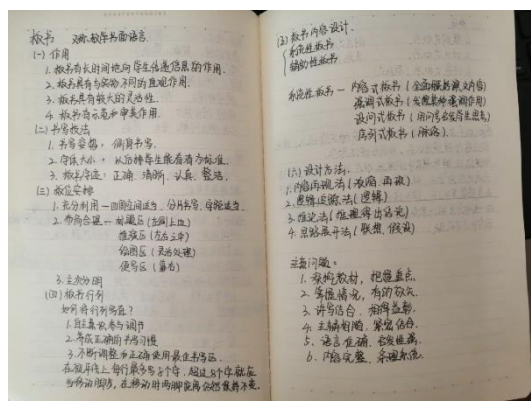 板书 又称教学书面语言.
(一) 作用
1. 板书有长时间地向学生传递信息的作用.
2. 板书具有与实物不同的直观作用.
3. 板书具有较大的灵活性.
4. 板书有示范和审美作用.
(二) 书写技法
1. 书写姿势: 侧身书写.
2. 字体大小: 从后排学生能看清为标准.
3. 板书字迹: 正确 清晰. 认真. 整洁.
(三) 板位安排
1. 充分利用一四周空间适当. 分片书写. 字距适当.
2. 布局合理 — 标题区 (左侧上位)
推演区 (左右主中)
绘图区 (灵活处理)
便写区 (靠右)
3. 主次分明
(四) 板书行列
如何将行列写直?
1. 自主意识参与调节
2. 养成正确的书写习惯
3. 不断调整和正确使用最佳书写区.
在板书上每行最多写8个字. 超过8个字就应
当移动脚步, 在移动时两脚距离仍然保持不变.
(五) 板书内容设计.
系统性板书
辅助性板书
系统性板书 — 内容式板书 (全面概括课文内容)
强调式板书 (发挥某种强调作用)
设问式板书 (用问号启发学生思考)
序列式板书 (脉络)
(六) 设计方法.
1. 内容再现法 (浓缩 再现)
2. 逻辑追踪法 (逻辑)
3. 推论法 (推理得出结论)
4. 思路展开法 (联想. 假设)
注意问题:
1. 深挖教材, 把握重点.
2. 掌握情况, 有的放矢.
3. 讲写结合, 相得益彰.
4. 主辅相随, 紧密结合.
5. 语言正确, 启发性强.
6. 内容完整, 条理系统.